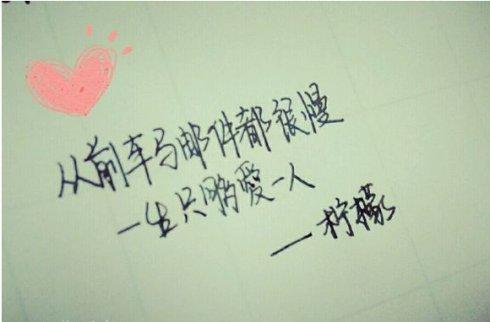 从前车马邮件都很慢
一生只够爱一人
—柠檬